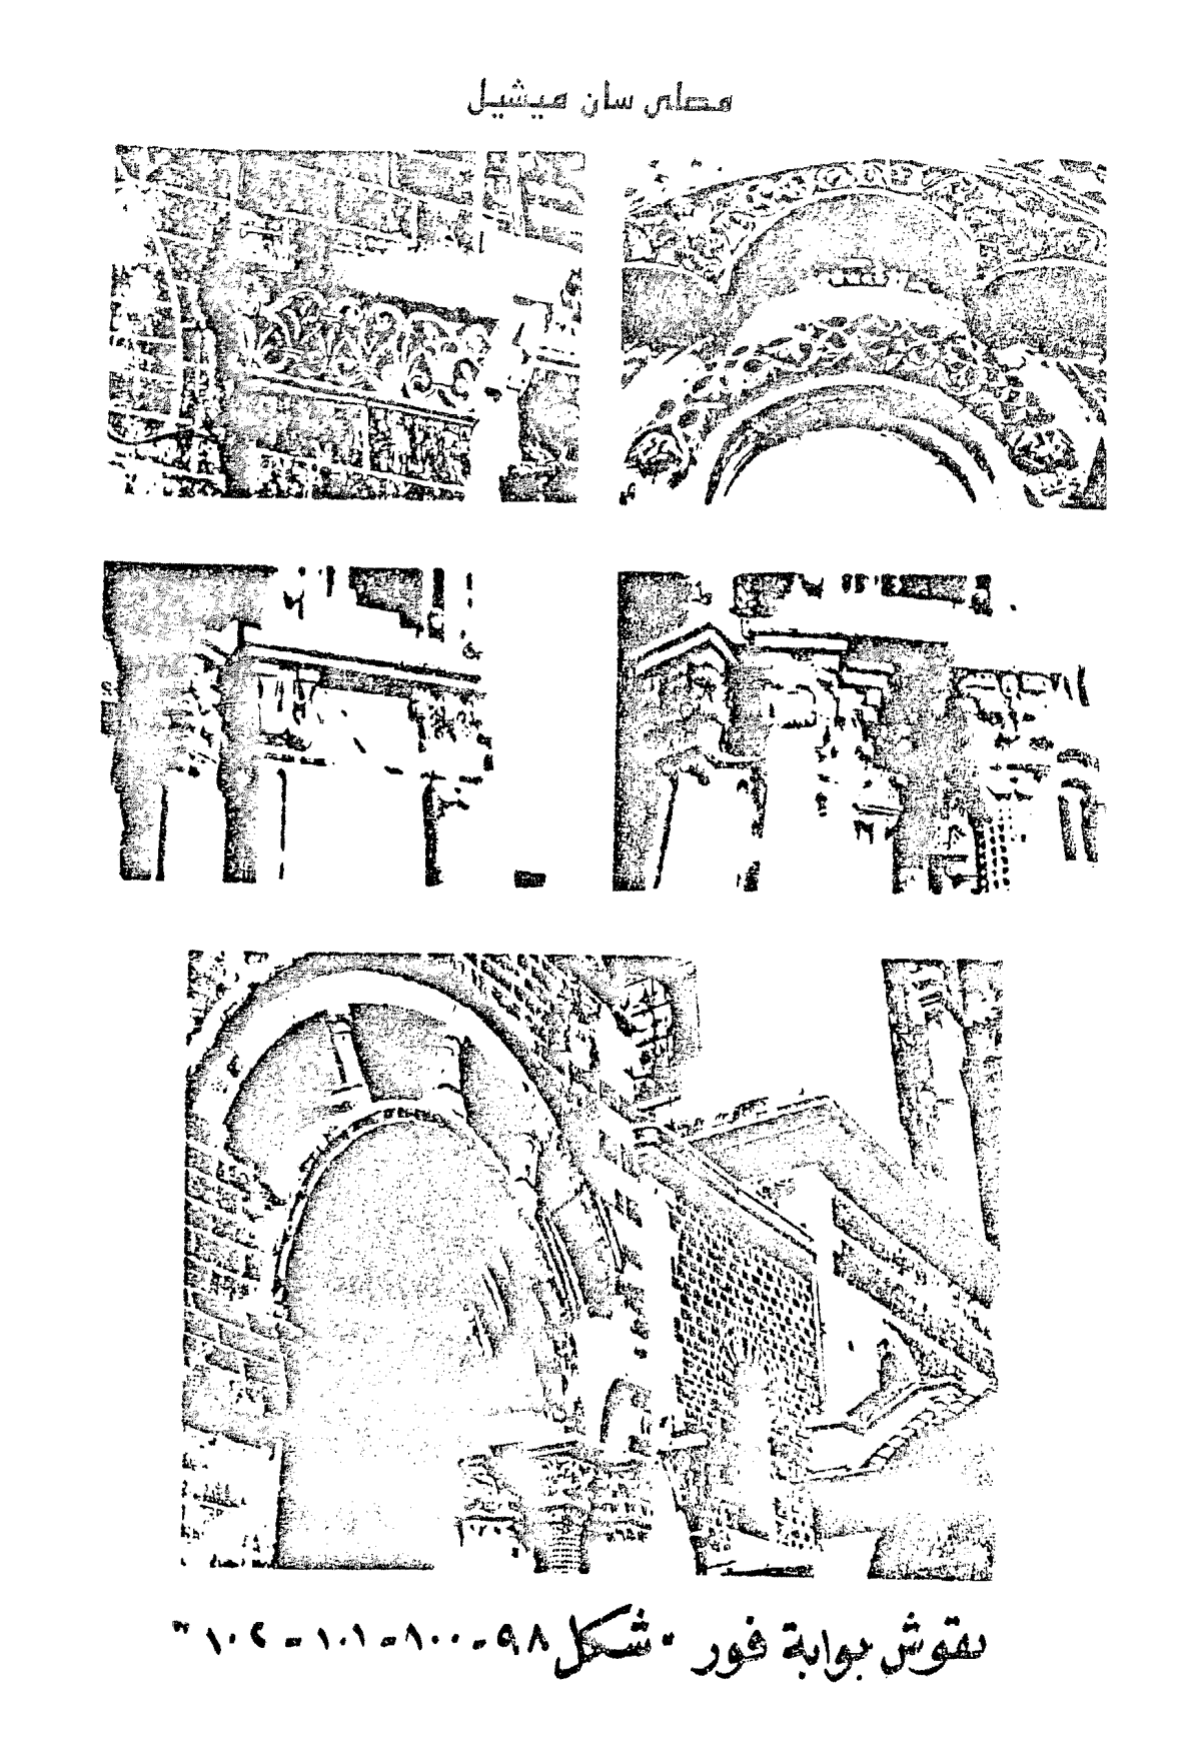 مصلى سان ميشيل
نقوش بوابة فور "شكل ٩٨-١٠٠-١٠١-١٠٢"